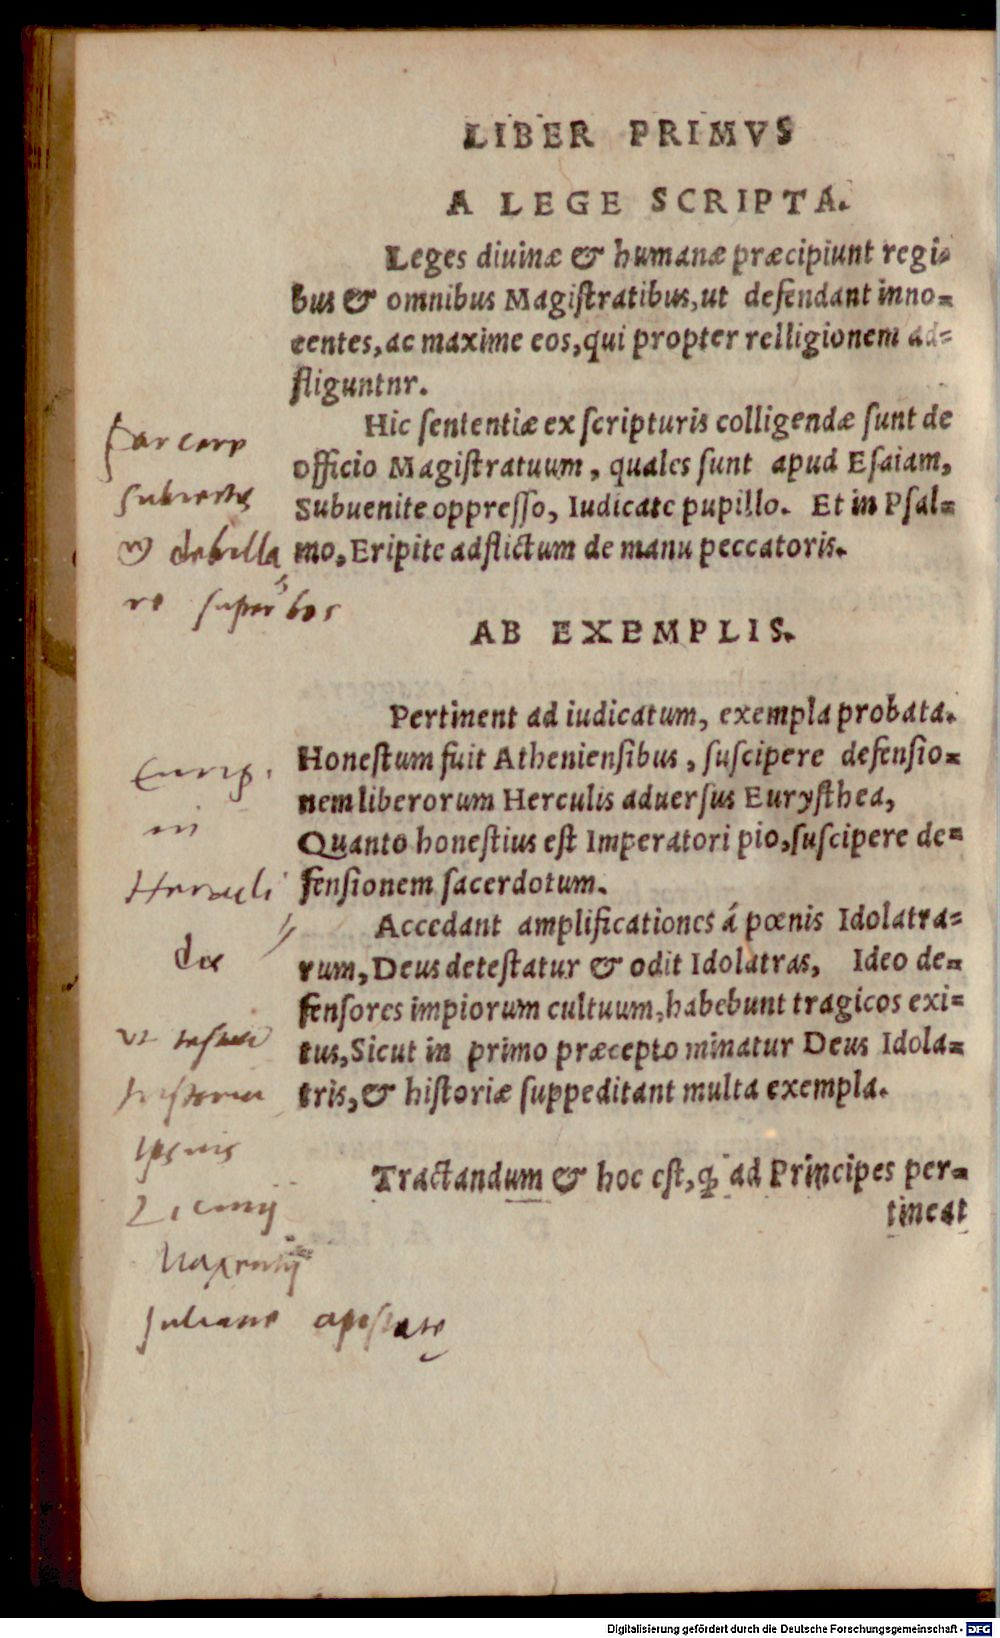 LIBER PRIMVS
A LEGE SCRIPTA.
Leges diuinæ & humanæ præcipiunt regi-
bus & omnibus Magiſtratibus, ut defendant inno-
centes, ac maxime eos, qui propter relligionem ad-
fliguntnr.
Hic ſententiæ ex ſcripturis colligendæ ſunt de
officio Magiſtratuum, quales ſunt apud Eſaiam,
Subuenite oppreſſo, Iudicate pupillo. Et in Pſal-
mo, Eripite adflictum de manu peccatoris.
parcere
subiectis
et debella
re superbos
AB EXEMPLIS.
Pertinent ad iudicatum, exempla probata.
Honeſtum fuit Athenienſibus, ſuſcipere defenſio-
nem liberorum Herculis aduerſus Euryſthea,
Quanto honeſtius eſt Imperatori pio, ſuſcipere de-
fenſionem ſacerdotum.
Eurip.
in
Heracli
dis
Accedant amplificationes á pœnis Idolatra-
rum, Deus deteſtatur & odit Idolatras, Ideo de-
fenſores impiorum cultuum, habebunt tragicos exi-
tus, Sicut in primo præcepto minatur Deus Idola-
tris, & hiſtoriæ ſuppeditant multa exempla.
historia
Licinij
Maxentij
Juliani apostate
Tractandum & hoc eſt, ꝙ ad Principes per-
tineat
Digitalisierung gefördert durch die Deutsche Forschungsgemeinschaft - DFG